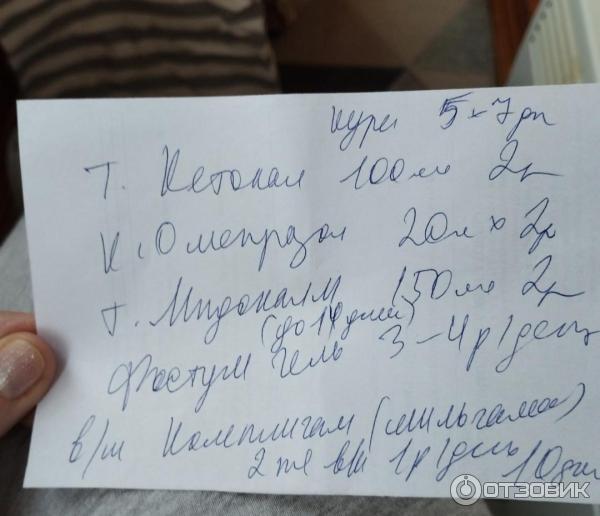 курс 5-7 дн
Т. Кетонал 100мг 2р
К. Омепразол 20мг х 2р
Т. Мидокалм 150мг 2р
(до 14 дней)
Фастум гель 3-4р/день
в/м Комплигам (мильгамма)
2 мл в/м 1р/день 10дн
ОТЗОВИК